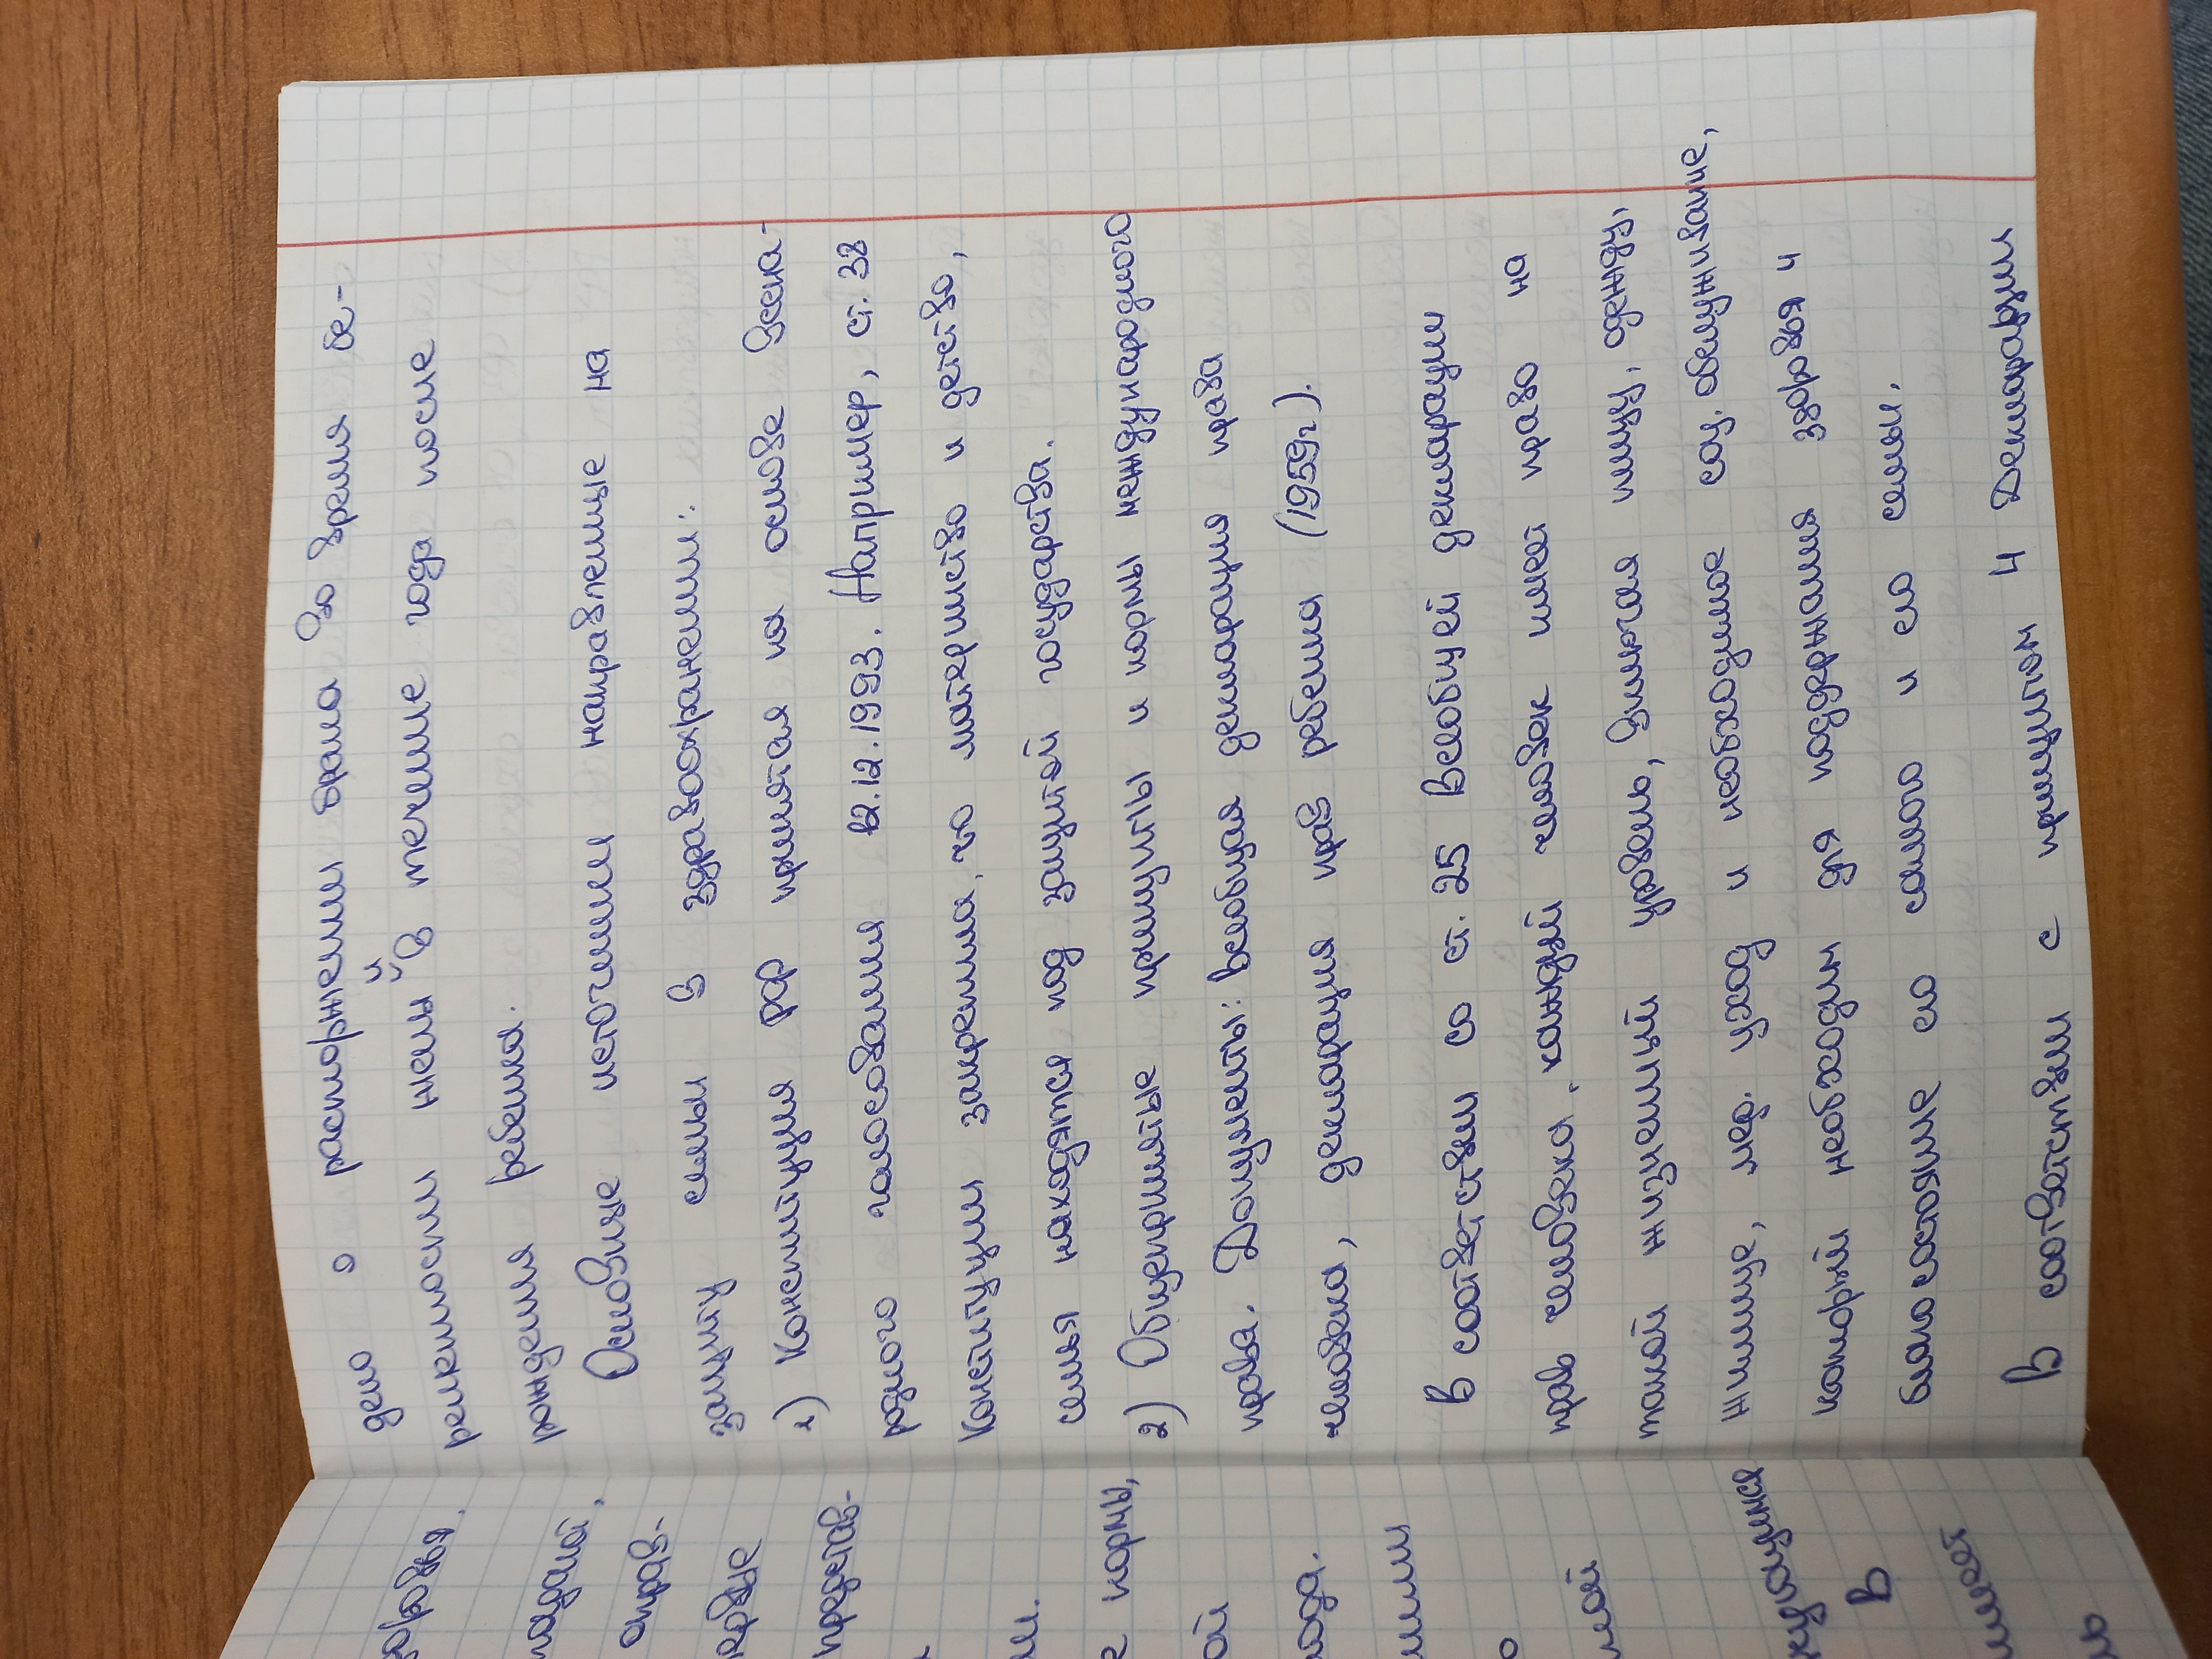 дело о расторжении брака во время бе-
ременности жены и в течение года после
рождения ребенка.
Основные источники направленные на
защиту семьи в здравоохранении:
1) Конституция РФ принятая на основе всена-
родного голосования 12.12.1993. Например, ст. 38
Конституции закрепила, что материнство и детство,
семья находятся под защитой государства.
2) Общепринятые принципы и нормы международного
права. Документы: всеобщая декларация права
человека, декларация прав ребенка (1959г).
В соответствии со ст. 25 Всеобщей декларации
прав человека, каждый человек имеет право на
такой жизненный уровень, включая пищу, одежду,
жилище, мед. уход и необходимое соц. обслуживание,
который необходим для поддержания здоровья и
благосостояние его самого и его семьи.
В соответствии с принципом 4 Декларации
здоровья,
справ-
представ-
нормы,
В
имеет